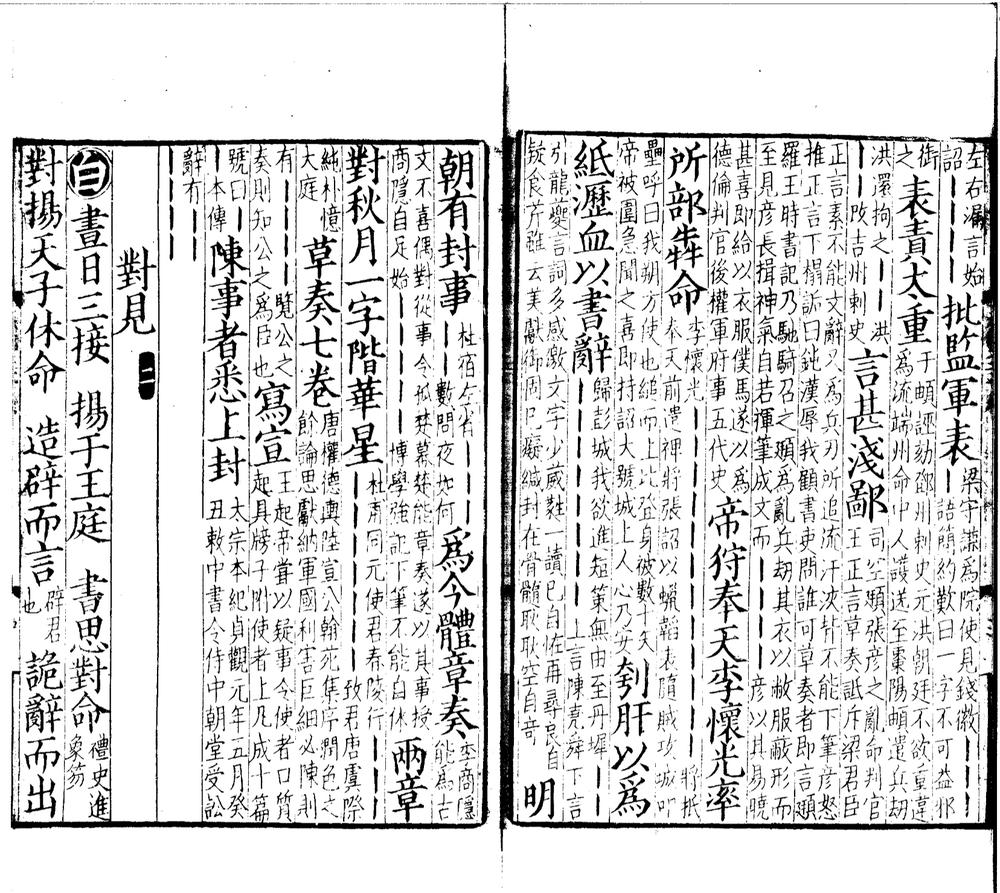 左右漏言始詔｜｜｜｜批監軍表梁守謙為院使見錢徽｜｜｜｜語簡約歎曰一字不可益邪
銜之表責大重于頔誣劾鄧州刺史元洪朝廷不欲重違為流端州命中人護送至棗陽頔遣兵劫
洪還拘之｜｜洪｜｜改吉州刺史言甚淺鄙司空頲張彥之亂命判官王正言草奏詆斥梁君臣
正言素不能文辭又為兵刃所追流汗浹背不能下筆彥怒推正言下榻訴曰鈍漢辱我顧書吏問誰可草奏者即言頲
羅王時書記乃馳騎召之頲為亂兵劫其衣以敝服蔽形而至見彥長揖神氣自若揮筆成文而｜｜｜｜彥以其易曉
甚喜即給以衣服僕馬遂以為德倫判官後權軍府事五代史帝狩奉天李懷光率
所部犇命李懷光｜｜｜｜將抵奉天前遣裨將張詔以蠟韜表隋賊攻城叩
壘呼曰我朔方使也縋而上比登身被數十矢帝被圍急聞之喜即持詔大號城上人心乃安刳肝以為
紙瀝血以書辭歸彭城我欲進短策無由至丹墀｜｜｜｜｜｜｜上言陳堯舜下言
引龍夔言詞多感激文字少葳蕤一讀已自佐再尋良自鼓食芹雖云美獻御固已癡緘封在骨髓耿耿空自奇明
朝有封事杜宿左省｜｜｜｜數問夜如何為今體章奏李商隱能為古
文不喜偶對從事令狐楚幕楚能章奏遂以其事授商隱自是始｜｜｜｜｜博學強記下筆不能自休兩章
對秋月一字階華星杜甫同元使君舂陵行｜｜｜｜致君唐虞際
純朴憶大庭草奏七卷唐權德輿陸宣公翰苑集序潤色之餘論思獻納軍國利害巨細必陳則
有｜｜｜｜覽公之奏則知公之為臣也寫宣王起帝嘗以疑事令使者口質起具牓子附使者上凡成十篇
號曰｜｜本傳陳事者悉上封太宗本紀貞觀元年五月癸丑敕中書令侍中朝堂受訟
辭有｜｜｜｜｜｜
對見 二
白 晝日三接 揚于王庭 書思對命禮史進象笏
對揚天子休命 造辟而言辟君也 詭辭而出